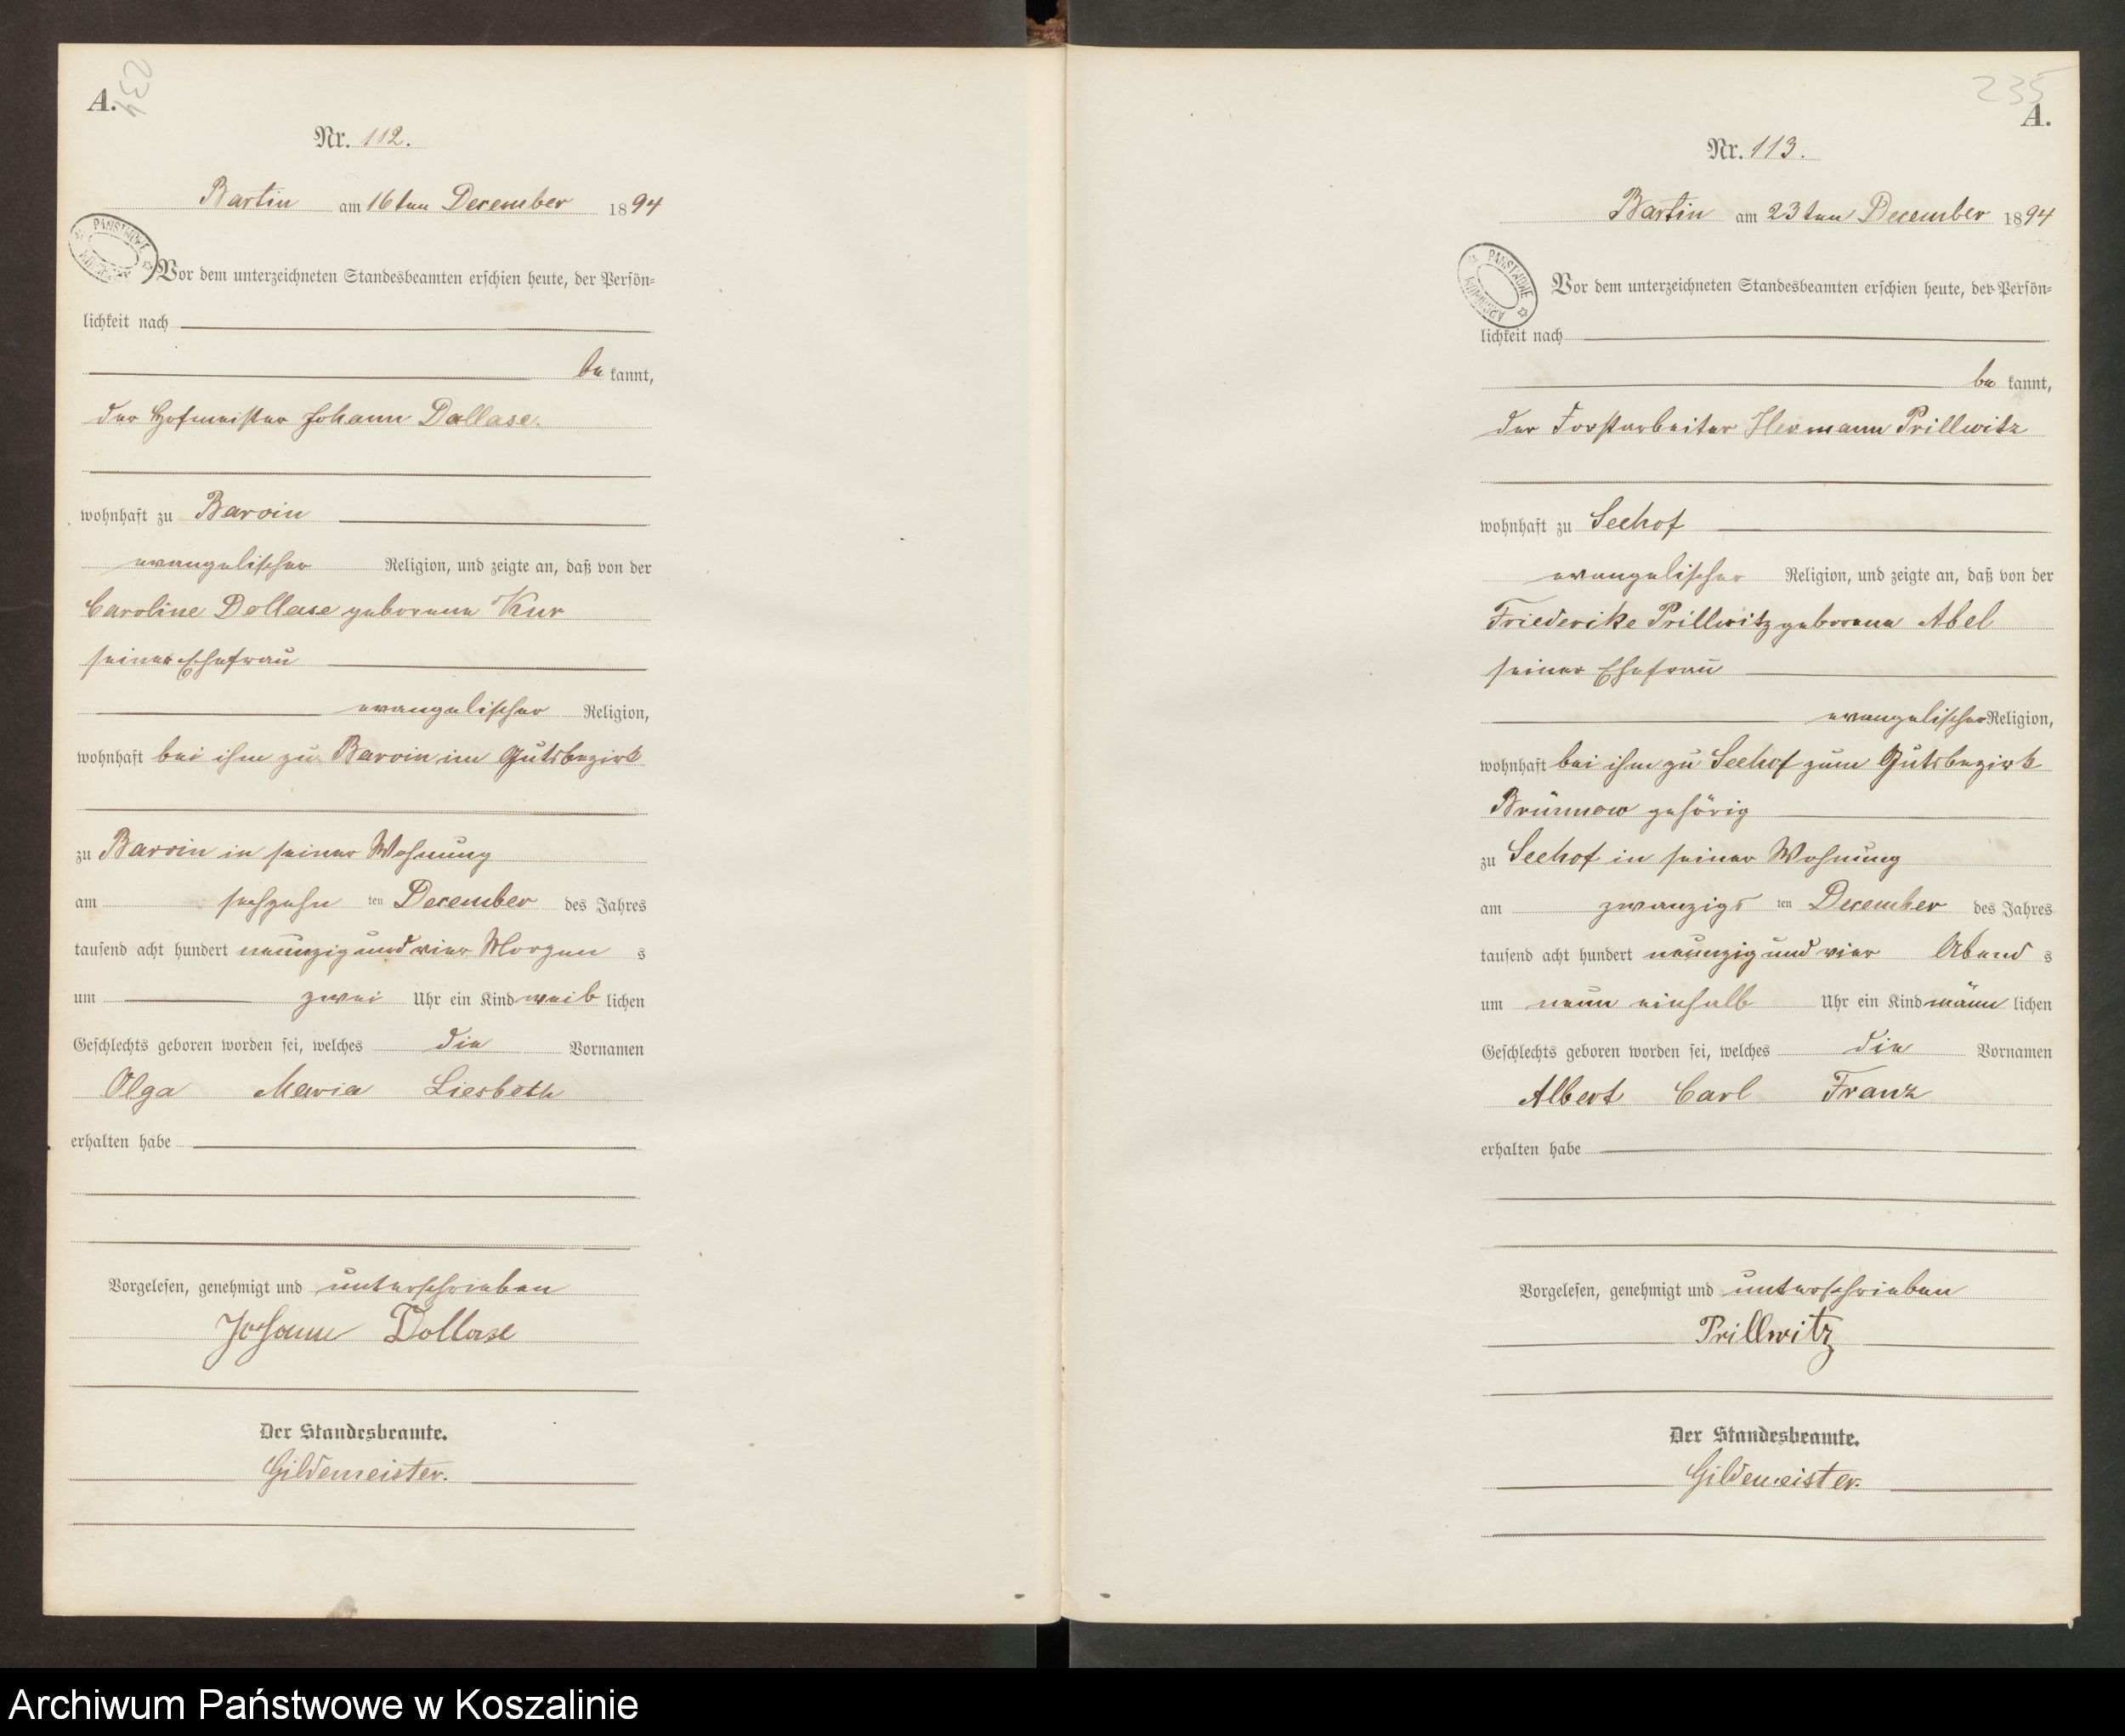 A.
234
Nr. 112.
Bartin am 16ten December 1894
PAŃSTWOWE
Vor dem unterzeichneten Standesbeamten erschien heute, der Persön-
lichkeit nach
be kannt,
der Hofmeister Johann Dollase.
wohnhaft zu Barvin
evangelischer Religion, und zeigte an, daß von der
Caroline Dollase geborene Kur
seiner Ehefrau
evangelischer Religion,
wohnhaft bei ihm zu Barvin im Gutsbezirk
zu Barvin in seiner Wohnung
am sechzehn ten December des Jahres
tausend acht hundert neunzig und vier Morgen s
um zwei Uhr ein Kind weib lichen
Geschlechts geboren worden sei, welches die Vornamen
Olga Maria Liesbeth
erhalten habe
Vorgelesen, genehmigt und unterschrieben
Johann Dollase
Der Standesbeamte.
Gildemeister.
235
A.
Nr. 113.
Bartin am 23ten December 1894
PAŃSTWOWE ARCHIWUM
Vor dem unterzeichneten Standesbeamten erschien heute, der Persön-
lichkeit nach
be kannt,
der Forstarbeiter Hermann Prillwitz
wohnhaft zu Seehof
evangelischer Religion, und zeigte an, daß von der
Friederike Prillwitz geborene Abel
seiner Ehefrau
evangelischer Religion,
wohnhaft bei ihm zu Seehof zum Gutsbezirk
Brünnow gehörig
zu Seehof in seiner Wohnung
am zwanzigs ten December des Jahres
tausend acht hundert neunzig und vier Abend s
um neun einhalb Uhr ein Kind männ lichen
Geschlechts geboren worden sei, welches die Vornamen
Albert Carl Franz
erhalten habe
Vorgelesen, genehmigt und unterschrieben
Prillwitz
Der Standesbeamte.
Gildemeister.
Archiwum Państwowe w Koszalinie